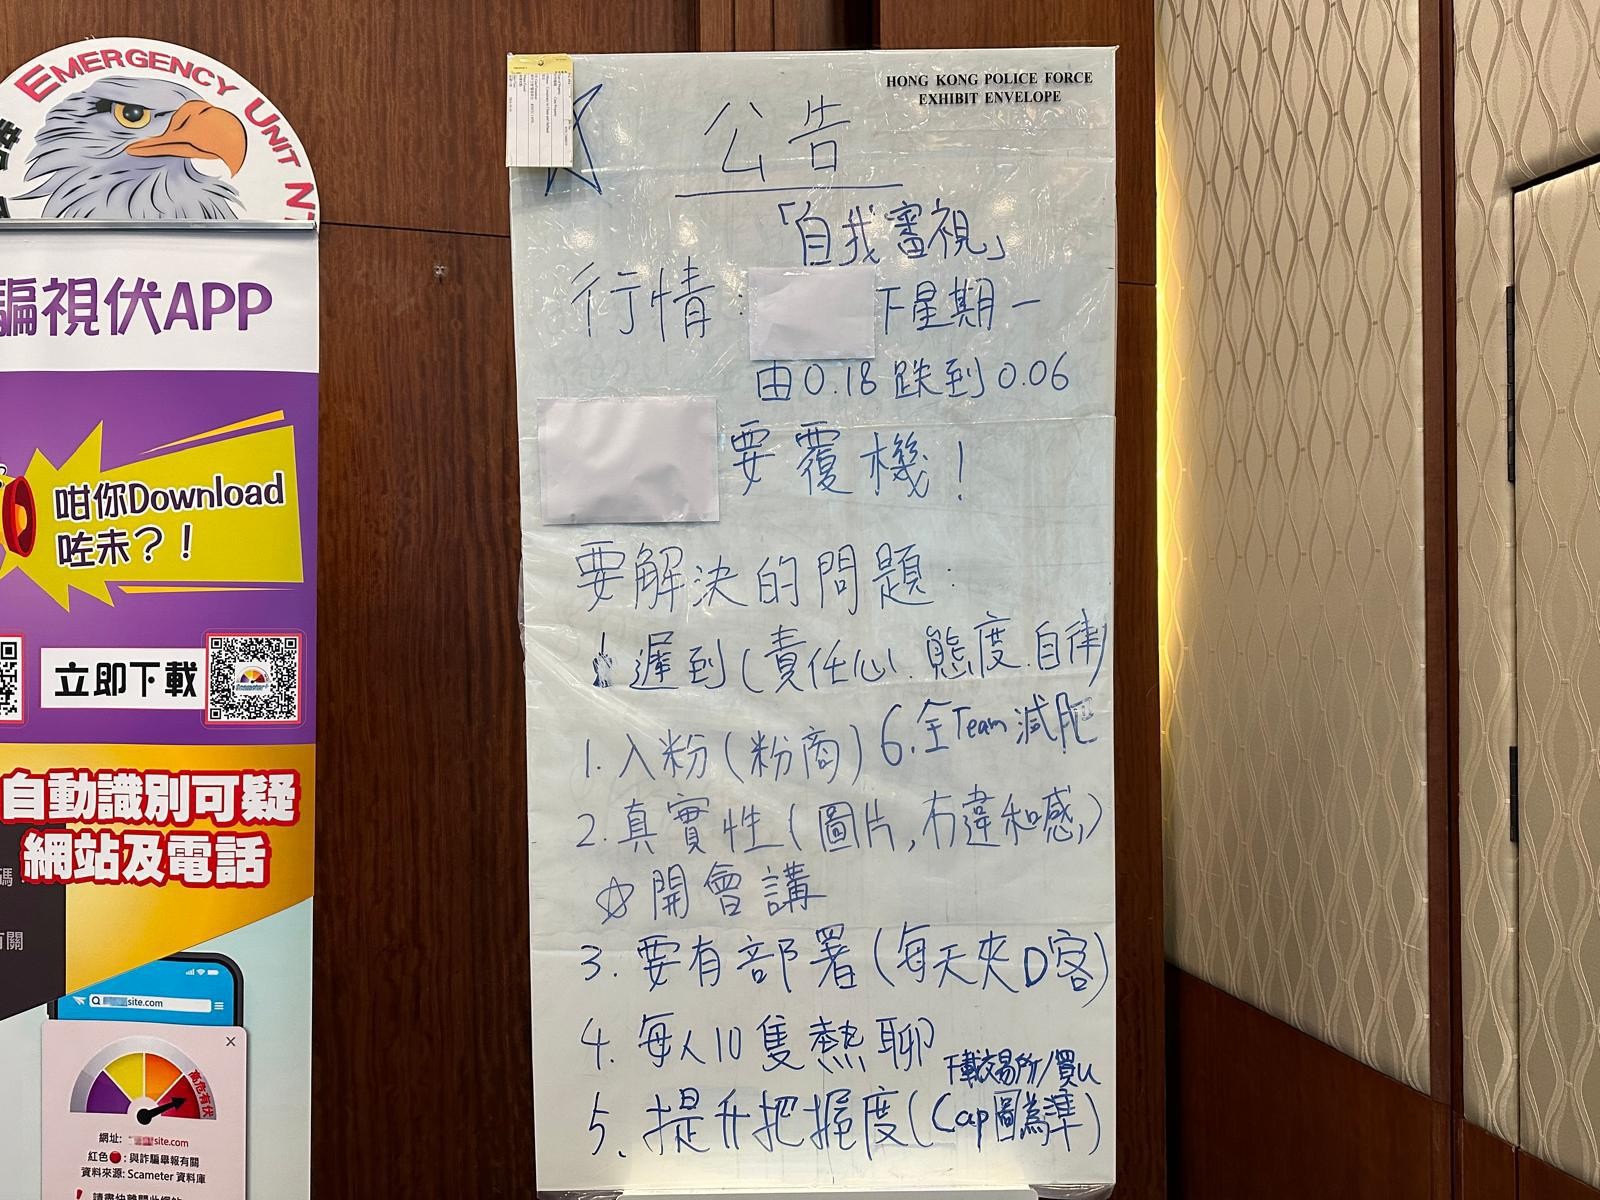 EMERGENCY UNIT NT
騙視伏APP
咁你Download
咗未？！
立即下載
自動識別可疑
網站及電話
碼
有關
site.com
高危有伏
網址: site.com
紅色: 與詐騙舉報有關
資料來源: Scameter 資料庫
HONG KONG POLICE FORCE
EXHIBIT ENVELOPE
公告
「自我審視」
行情: 下星期一
由0.18跌到0.06
要覆機！
要解決的問題:
遲到(責任心、態度、自律)
1. 入粉(粉商) 6. 全Team減肥
2. 真實性(圖片,冇違和感,)
☆開會講
3. 要有部署(每天夾D客)
4. 每人10隻熱聊
下載交易所/買U
5. 提升把握度(Cap圖為準)